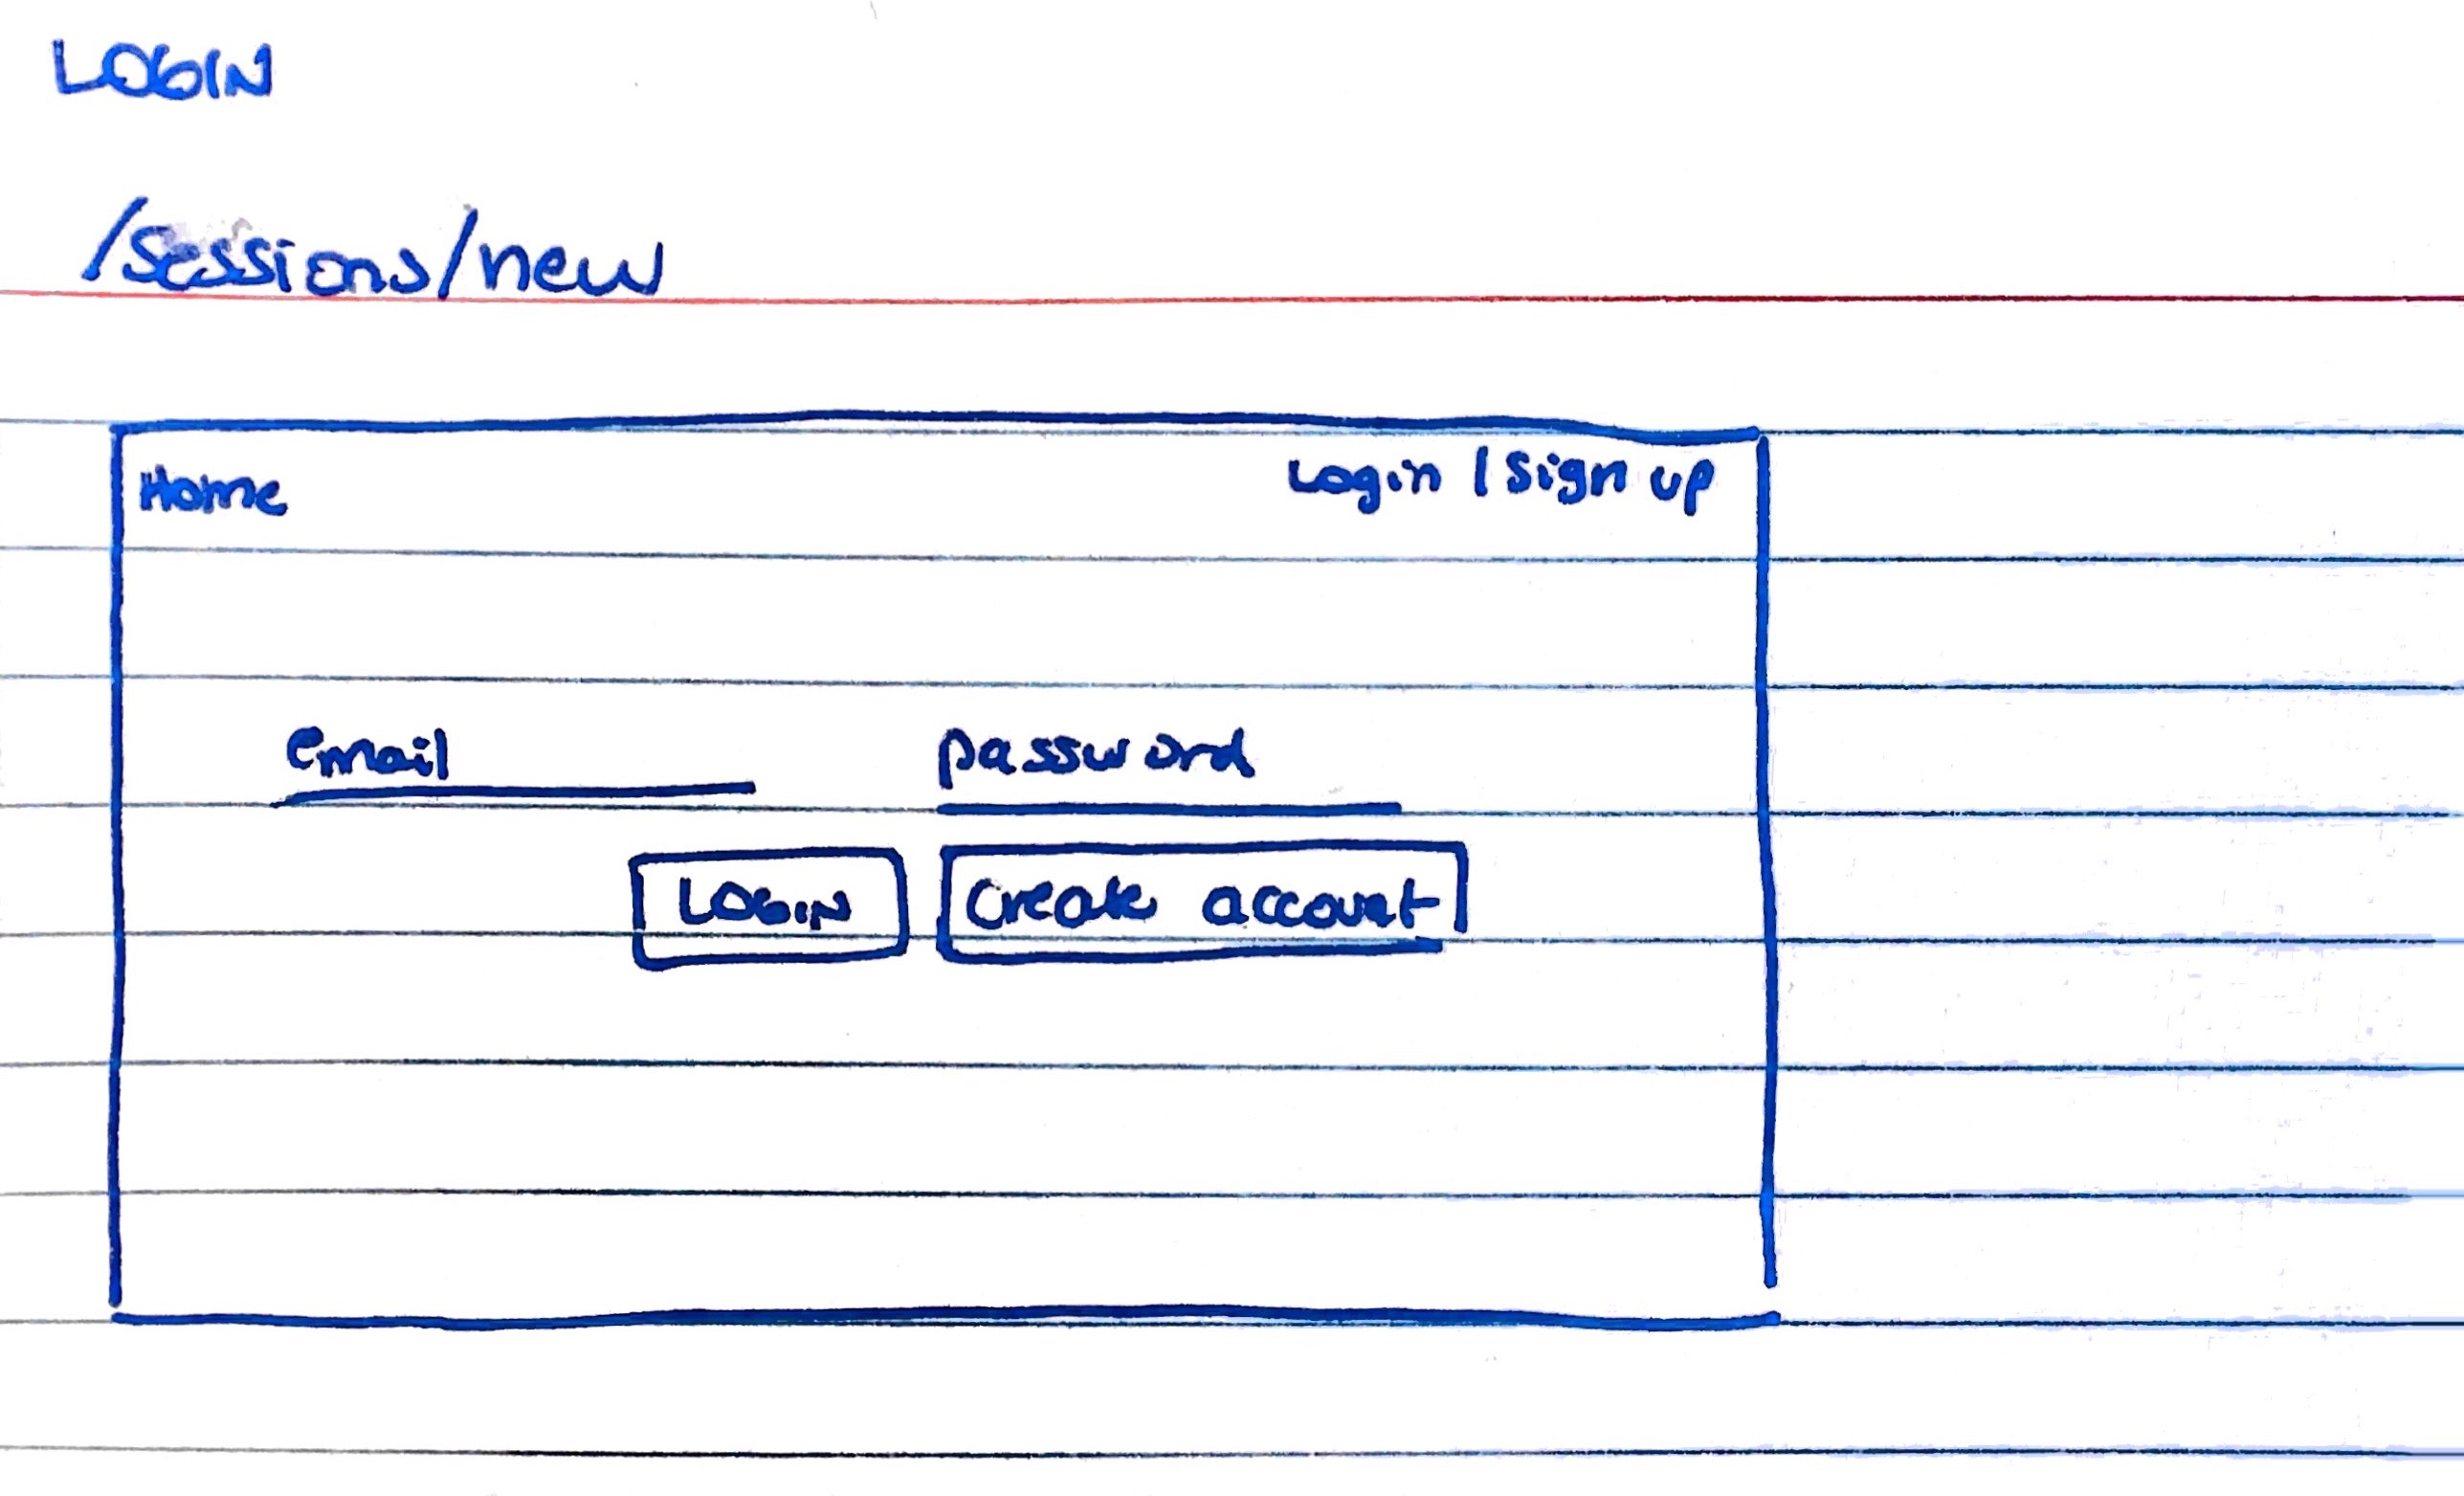 LOGIN
/sessions/new
Home Login | Sign up
email password
LOGIN Create account